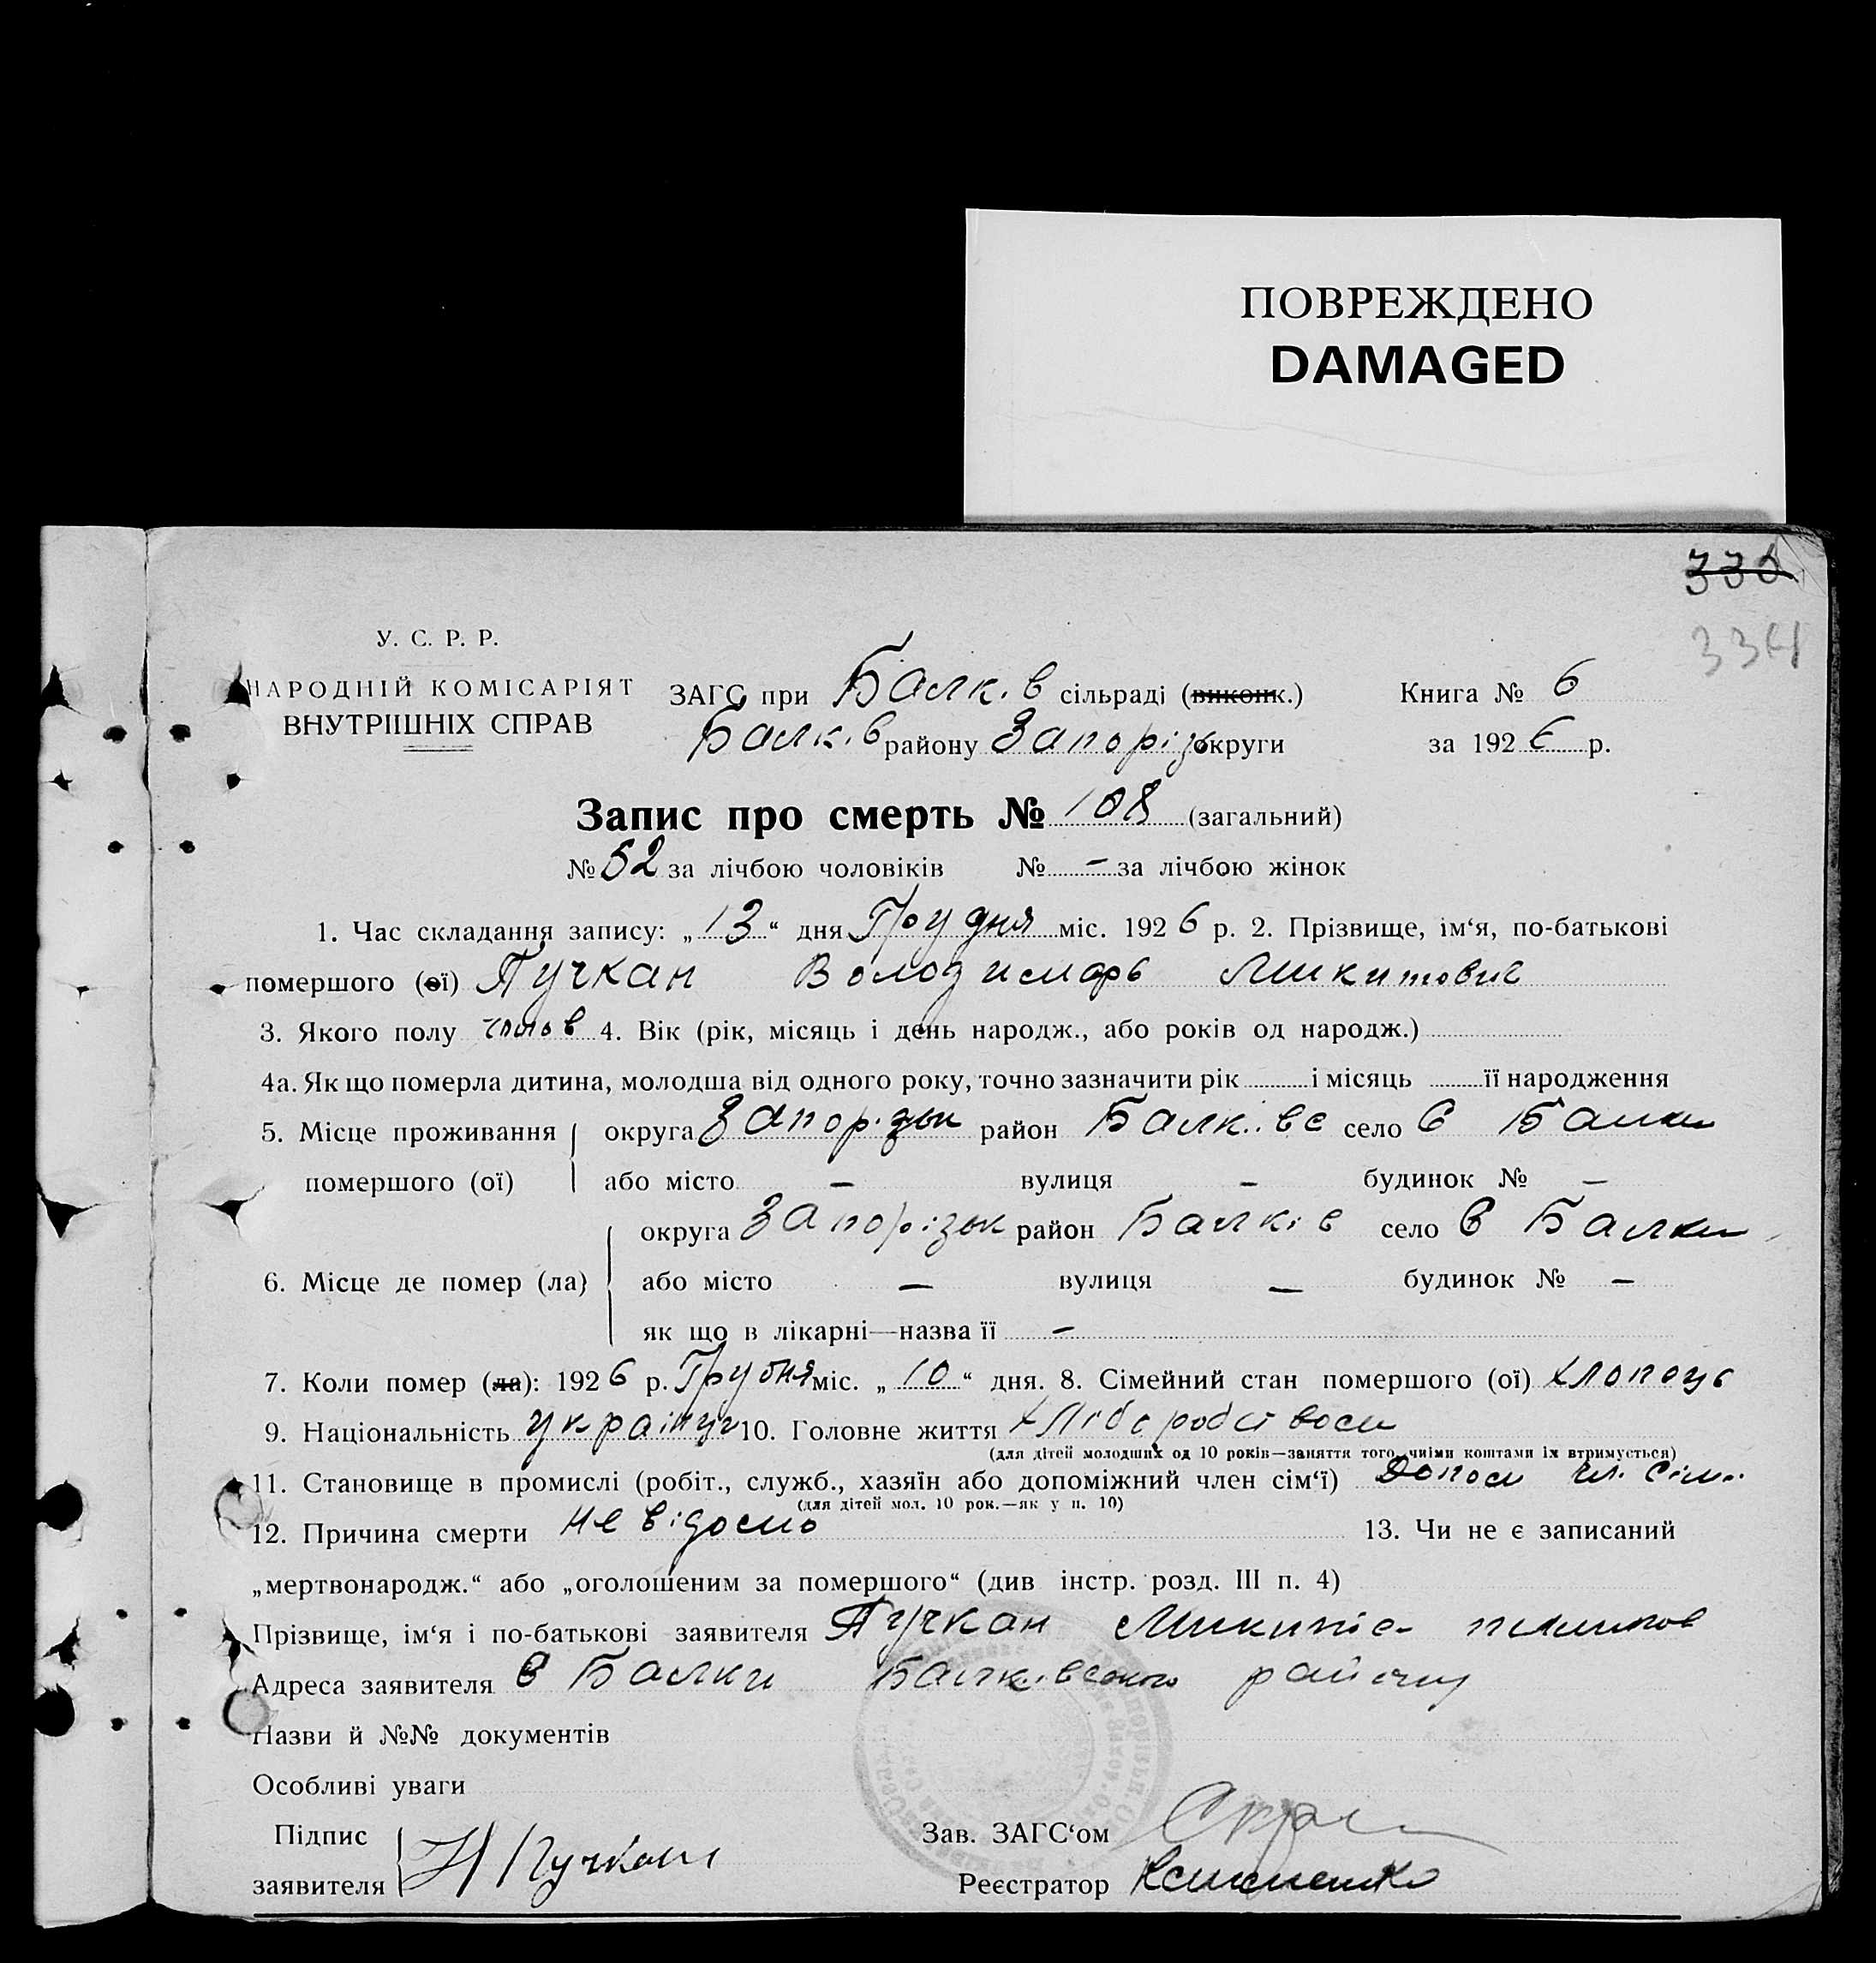 ПОВРЕЖДЕНО
DAMAGED
330
334
У. С. Р. Р.
НАРОДНІЙ КОМІСАРІЯТ
ВНУТРІШНІХ СПРАВ
ЗАГС при Балк.в сільраді (виконк.) Книга № 6
Балк.в району Запорізь округи за 1926 р.
Запис про смерть № 108 (загальний)
№ 52 за лічбою чоловіків № – за лічбою жінок
1. Час складання запису: „13“ дня Грудня міс. 1926 р. 2. Прізвище, ім‘я, по-батькові
помершого (ої) Пучкан Володимарь Микитович
3. Якого полу чолов 4. Вік (рік, місяць і день народж., або років од народж.)
4а. Як що померла дитина, молодша від одного року, точно зазначити рік і місяць її народження
5. Місце проживання округа Запорізьк район Балк.вс село В Балки
помершого (ої) або місто – вулиця – будинок № –
округа Запорізьк район Балків село В Балки
6. Місце де помер (ла) або місто – вулиця – будинок № –
як що в лікарні—назва її –
7. Коли помер (ла): 1926 р. Грудня міс. „10“ дня. 8. Сімейний стан помершого (ої) хлопець
9. Національність Українц 10. Головне життя хліборобством
(для дітей молодших од 10 років—заняття того, чиїми коштами їх втримується)
11. Становище в промислі (робіт., служб., хазяїн або допоміжний член сім‘ї) Допом чл. сім.
(для дітей мол. 10 рок.—як у п. 10)
12. Причина смерти не відомо 13. Чи не є записаний
„мертвонародж.“ або „оголошеним за помершого“ (див інстр. розд. III п. 4)
Прізвище, ім‘я і по-батькові заявителя Пучкан Микита пилипов
Адреса заявителя В Балки Балківського району
Назви й №№ документів
Особливі уваги
Підпис Зав. ЗАГС‘ом
заявителя Н Пучкан Реєстратор